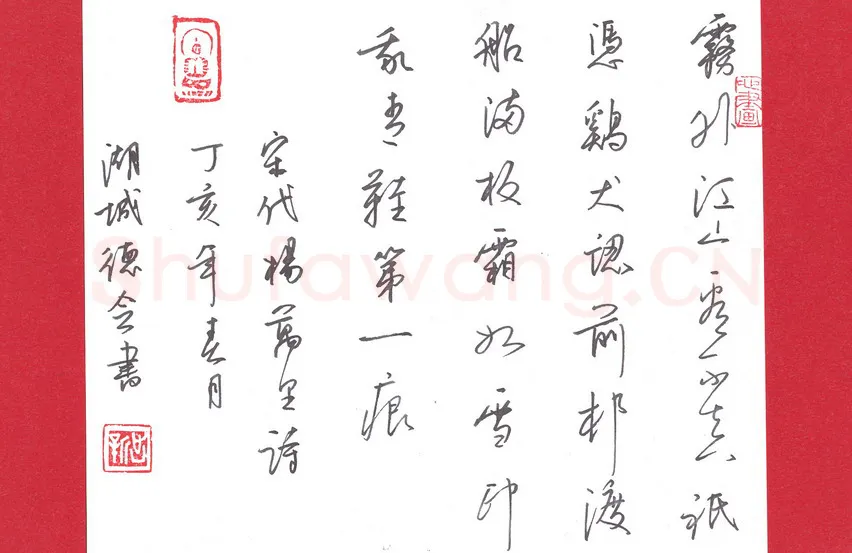 霧外江山看不真祇
憑鷄犬認前邨渡
船滿板霜如雪印
我青鞋第一痕
宋代楊萬里詩
丁亥年春月
湖城德書
心畫
Shufawang.CN